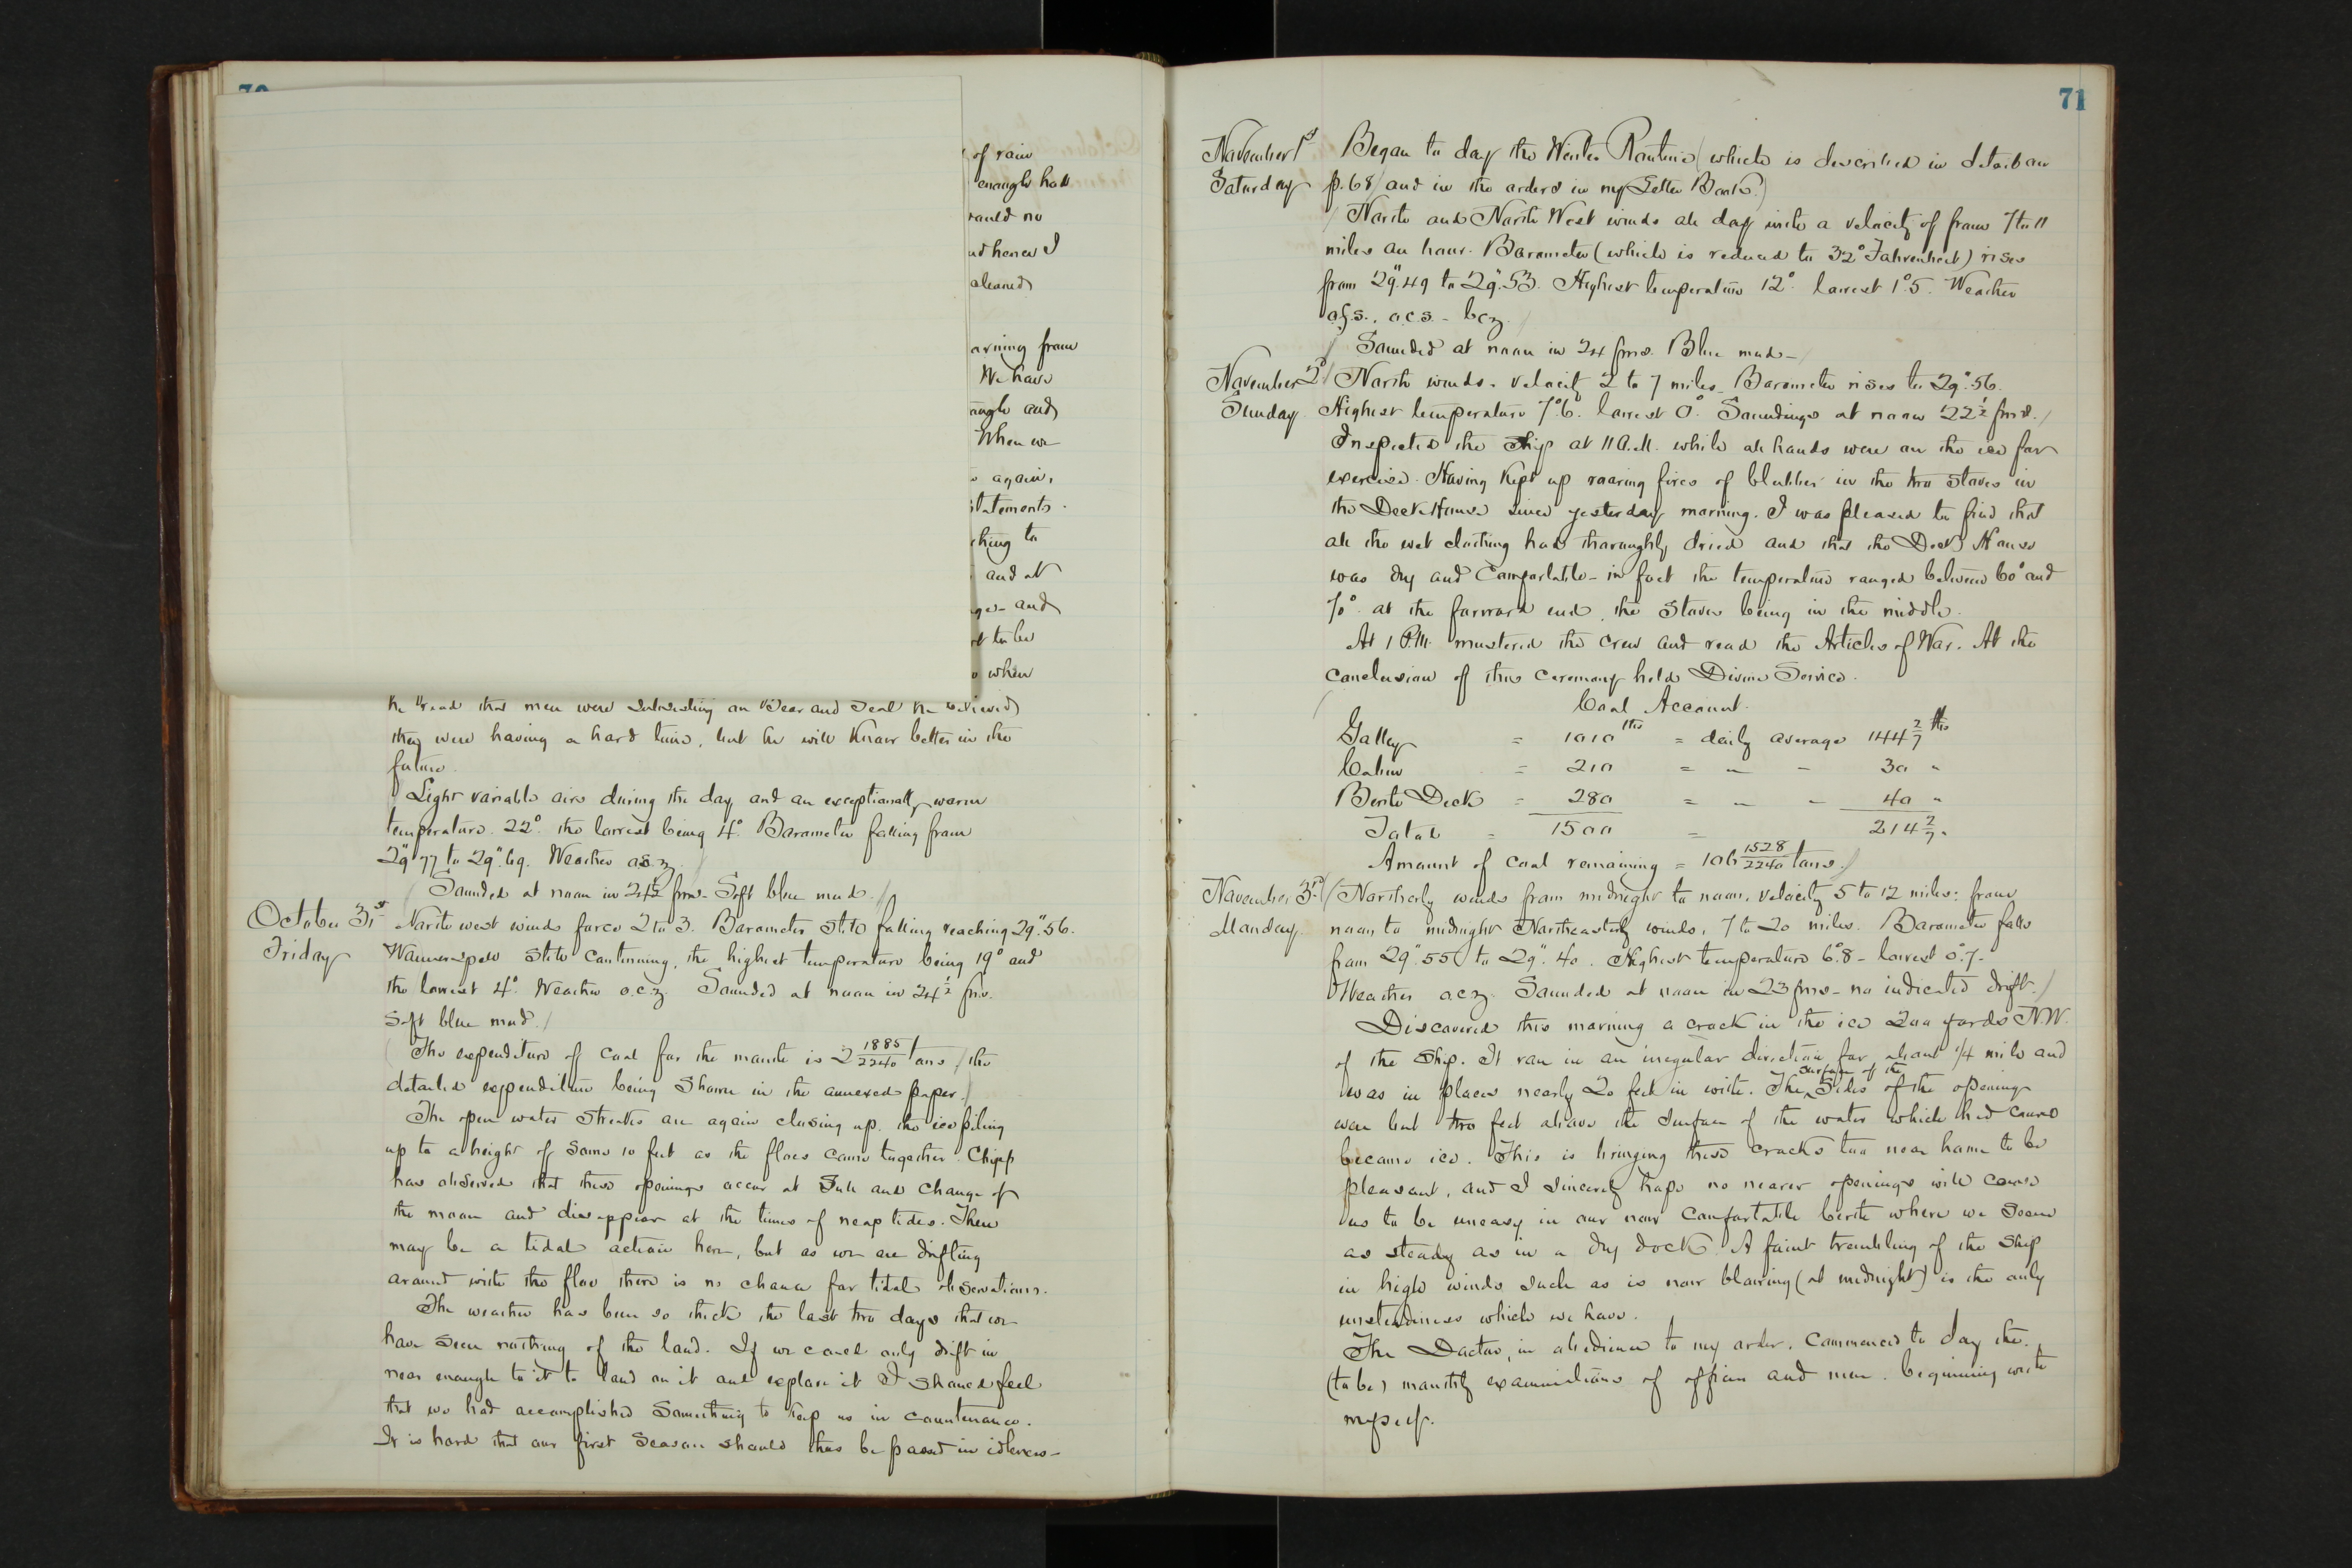 70
of rain
enough hot
would no
and hence I
cleaned
arning from
We have
ough and
When we
again,
statements.
ching to
and at
ges - and
ot to be
when
he read that men were subsisting on Bear and Seal he believed
they were having a hard time, but he will know better in the
future.
Light variable airs during the day and an exceptionally warm
temperature. 22° the lowest being 4°. Barometer falling from
29".77 to 29".69. Weather o.s.z.
Sounded at noon in 24½ fms. Soft blue mud.
October 31st North west winds force 2 to 3. Barometer still falling reaching 29".56.
Friday Warm spell still continuing, the highest temperature being 19° and
the lowest 4°. Weather o.c.z. Sounded at noon in 24½ fms.
Soft blue mud.
The expenditure of coal for the month is 2 1885/2240 tons (the
detailed expenditure being shown in the annexed paper.)
The open water streaks are again closing up, the ice piling
up to a height of some 10 feet as the floes come together. Chipp
has observed that these openings occur at Full and Change of
the moon and disappear at the times of neap tides. There
may be a tidal action here, but as we are drifting
around with the floe there is no chance for tidal observations.
The weather has been so thick the last two days that we
have seen nothing of the land. If we could only drift in
near enough to it to land on it and explore it I should feel
that we had accomplished something to keep us in countenance.
It is hard that our first season should thus be passed in idleness -
71
November 1st Began to day the Winter Routine (which is described in detail on
Saturday p. 68) and in the orders in my Letter Book.)
North and North West winds all day with a velocity of from 7 to 11
miles an hour. Barometer (which is reduced to 32° Fahrenheit) rises
from 29".49 to 29".53. Highest temperature 12°. lowest 1°.5. Weather
o.g.s., o.c.s. - bcz.
Sounded at noon in 24 fms. Blue mud -
November 2d North winds. Velocity 2 to 7 miles. Barometer rises to 29".56.
Sunday Highest temperature 7°.6. lowest 0°. Soundings at noon 22½ fms.
Inspected the ship at 11 A.M. while all hands were on the ice for
exercise. Having kept up roaring fires of blubber in the two stoves in
the Deck House since yesterday morning. I was pleased to find that
all the wet clothing had thoroughly dried and that the Deck House
was dry and comfortable - in fact the temperature ranged between 60° and
70° at the forward end, the stoves being in the middle.
At 1 P.M. mustered the crew and read the Articles of War. At the
conclusion of this ceremony held Divine Service.
Coal Account.
Galley = 1010 lbs = daily average 144 2/7 lbs
Cabin = 210 = - - 30 "
Berth Deck = 280 = - - 40 "
Total = 1500 = 214 2/7 "
Amount of coal remaining = 106 1528/2240 tons.
November 3rd Northerly winds from midnight to noon, velocity 5 to 12 miles: from
Monday noon to midnight Northeasterly winds, 7 to 20 miles. Barometer falls
from 29".55 to 29".40. Highest temperature 6°.8 - lowest 0°.7 -
Weather o.c.z. Sounded at noon in 23 fms - no indicated drift.
Discovered this morning a crack in the ice 200 yards NW.
of the ship. It ran in an irregular direction for about 1/4 mile and
was in places nearly 20 feet in width. The surface of the sides of the opening
was but two feet above the surface of the water which had come
become ice. This is bringing these cracks too near home to be
pleasant, and I sincerely hope no nearer openings will come
us to be uneasy in our now comfortable berth where we seem
as steady as in a dry dock. A faint trembling of the ship
in high winds such as is now blowing (at midnight) is the only
unsteadiness which we have.
The Doctor, in obedience to my order, commenced to day the
(to be) monthly examinations of officers and men, beginning with
myself.